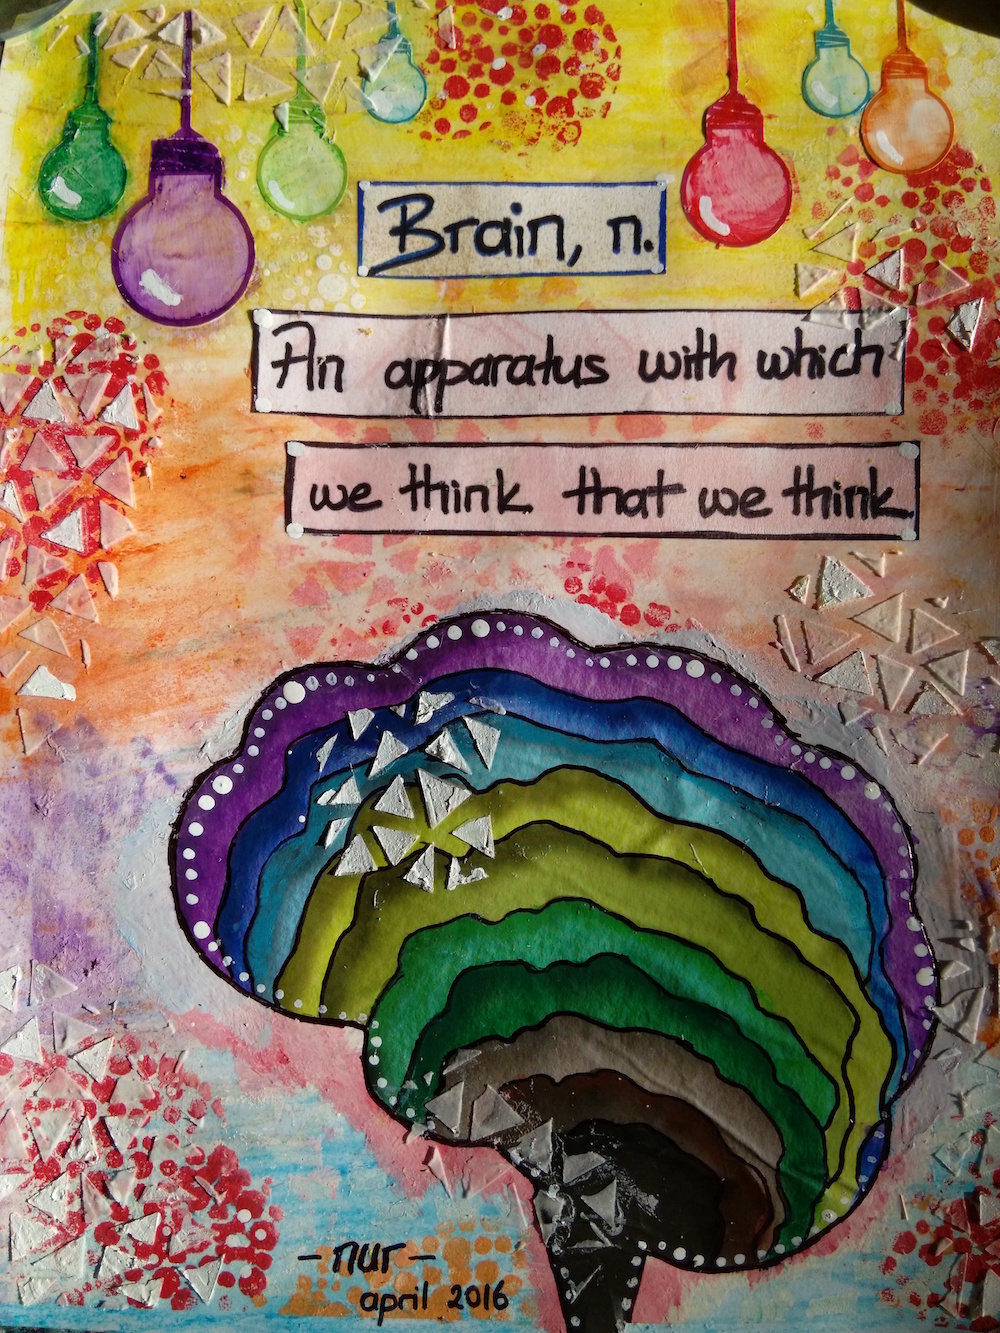 Brain, n.
An apparatus with which
we think that we think.
- nur -
april 2016